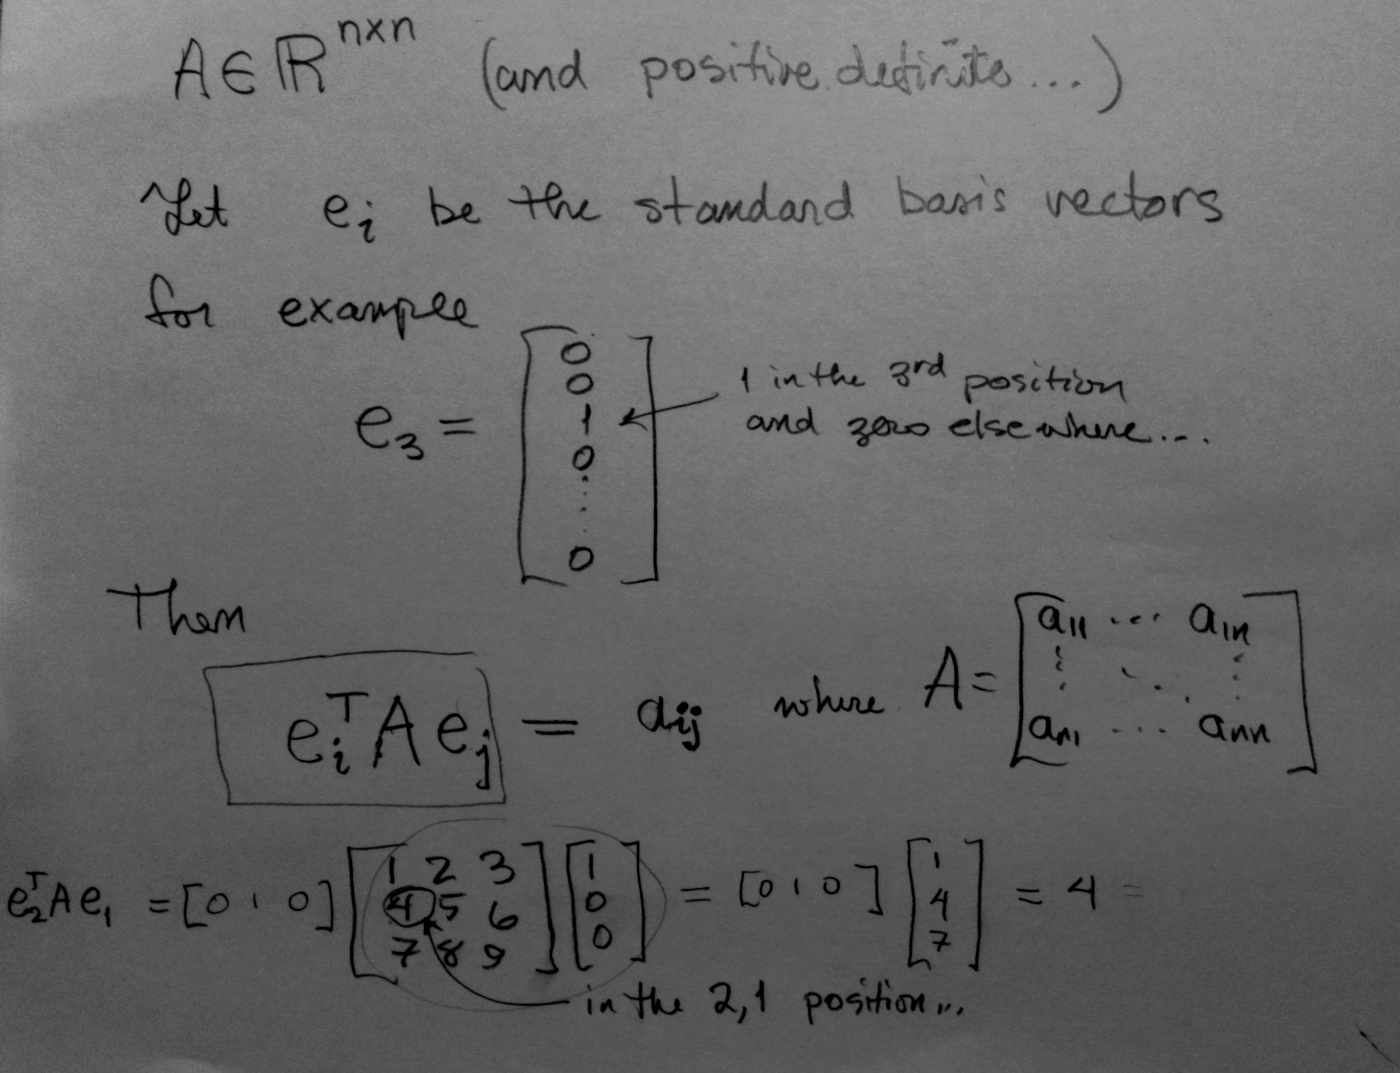 A ∈ ℝⁿˣⁿ (and positive definite...)
Let eᵢ be the standard basis vectors
for example
e₃ = [0 0 1 0 ⋮ 0] ← 1 in the 3rd position
and zero elsewhere...
Then
eᵢᵀAeⱼ = aᵢⱼ where A = [a₁₁ ... a₁ₙ
⋮ ⋱ ⋮
aₙ₁ ... aₙₙ]
e₂ᵀAe₁ = [0 1 0] [1 2 3; 4 5 6; 7 8 9] [1; 0; 0] = [0 1 0] [1; 4; 7] = 4 =
in the 2,1 position...